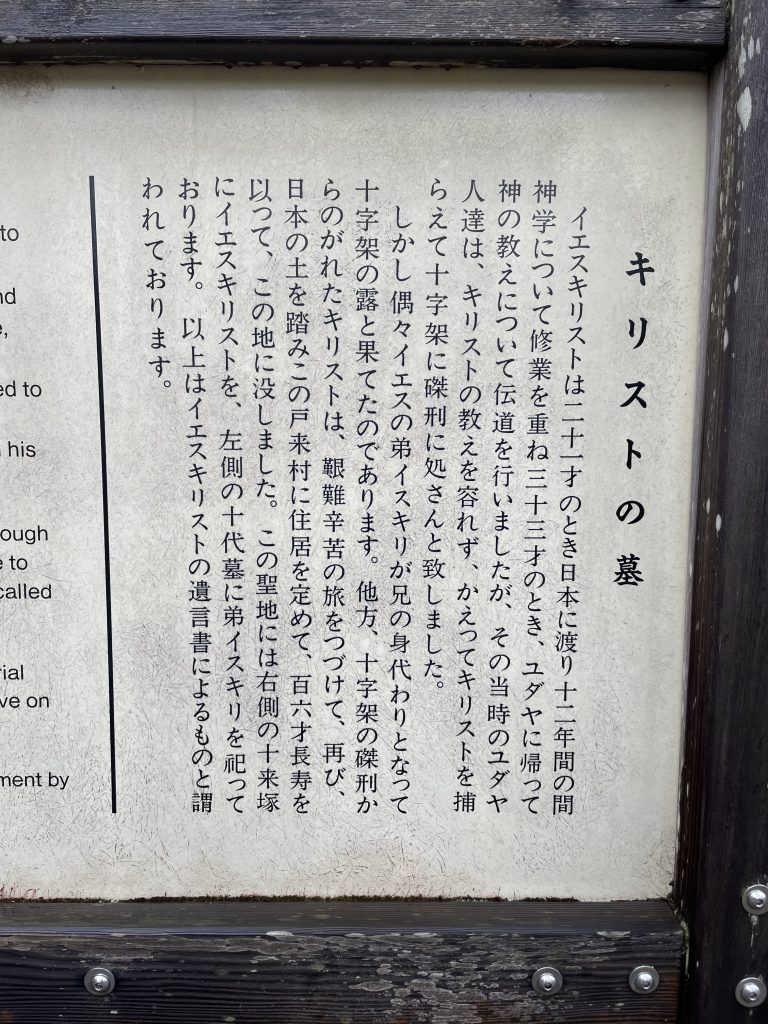 キリストの墓
イエスキリストは二十一才のとき日本に渡り十二年間の間
神学について修業を重ね三十三才のとき、ユダヤに帰って
神の教えについて伝道を行いましたが、その当時のユダヤ
人達は、キリストの教えを容れず、かえってキリストを捕
らえて十字架に磔刑に処さんと致しました。
しかし偶々イエスの弟イスキリが兄の身代わりとなって
十字架の露と果てたのであります。他方、十字架の磔刑か
らのがれたキリストは、艱難辛苦の旅をつづけて、再び、
日本の土を踏みこの戸来村に住居を定めて、百六才長寿を
以って、この地に没しました。この聖地には右側の十来塚
にイエスキリストを、左側の十代墓に弟イスキリを祀って
おります。以上はイエスキリストの遺言書によるものと謂
われております。
to
nd
e,
ed to
his
ough
e to
called
rial
ve on
ment by